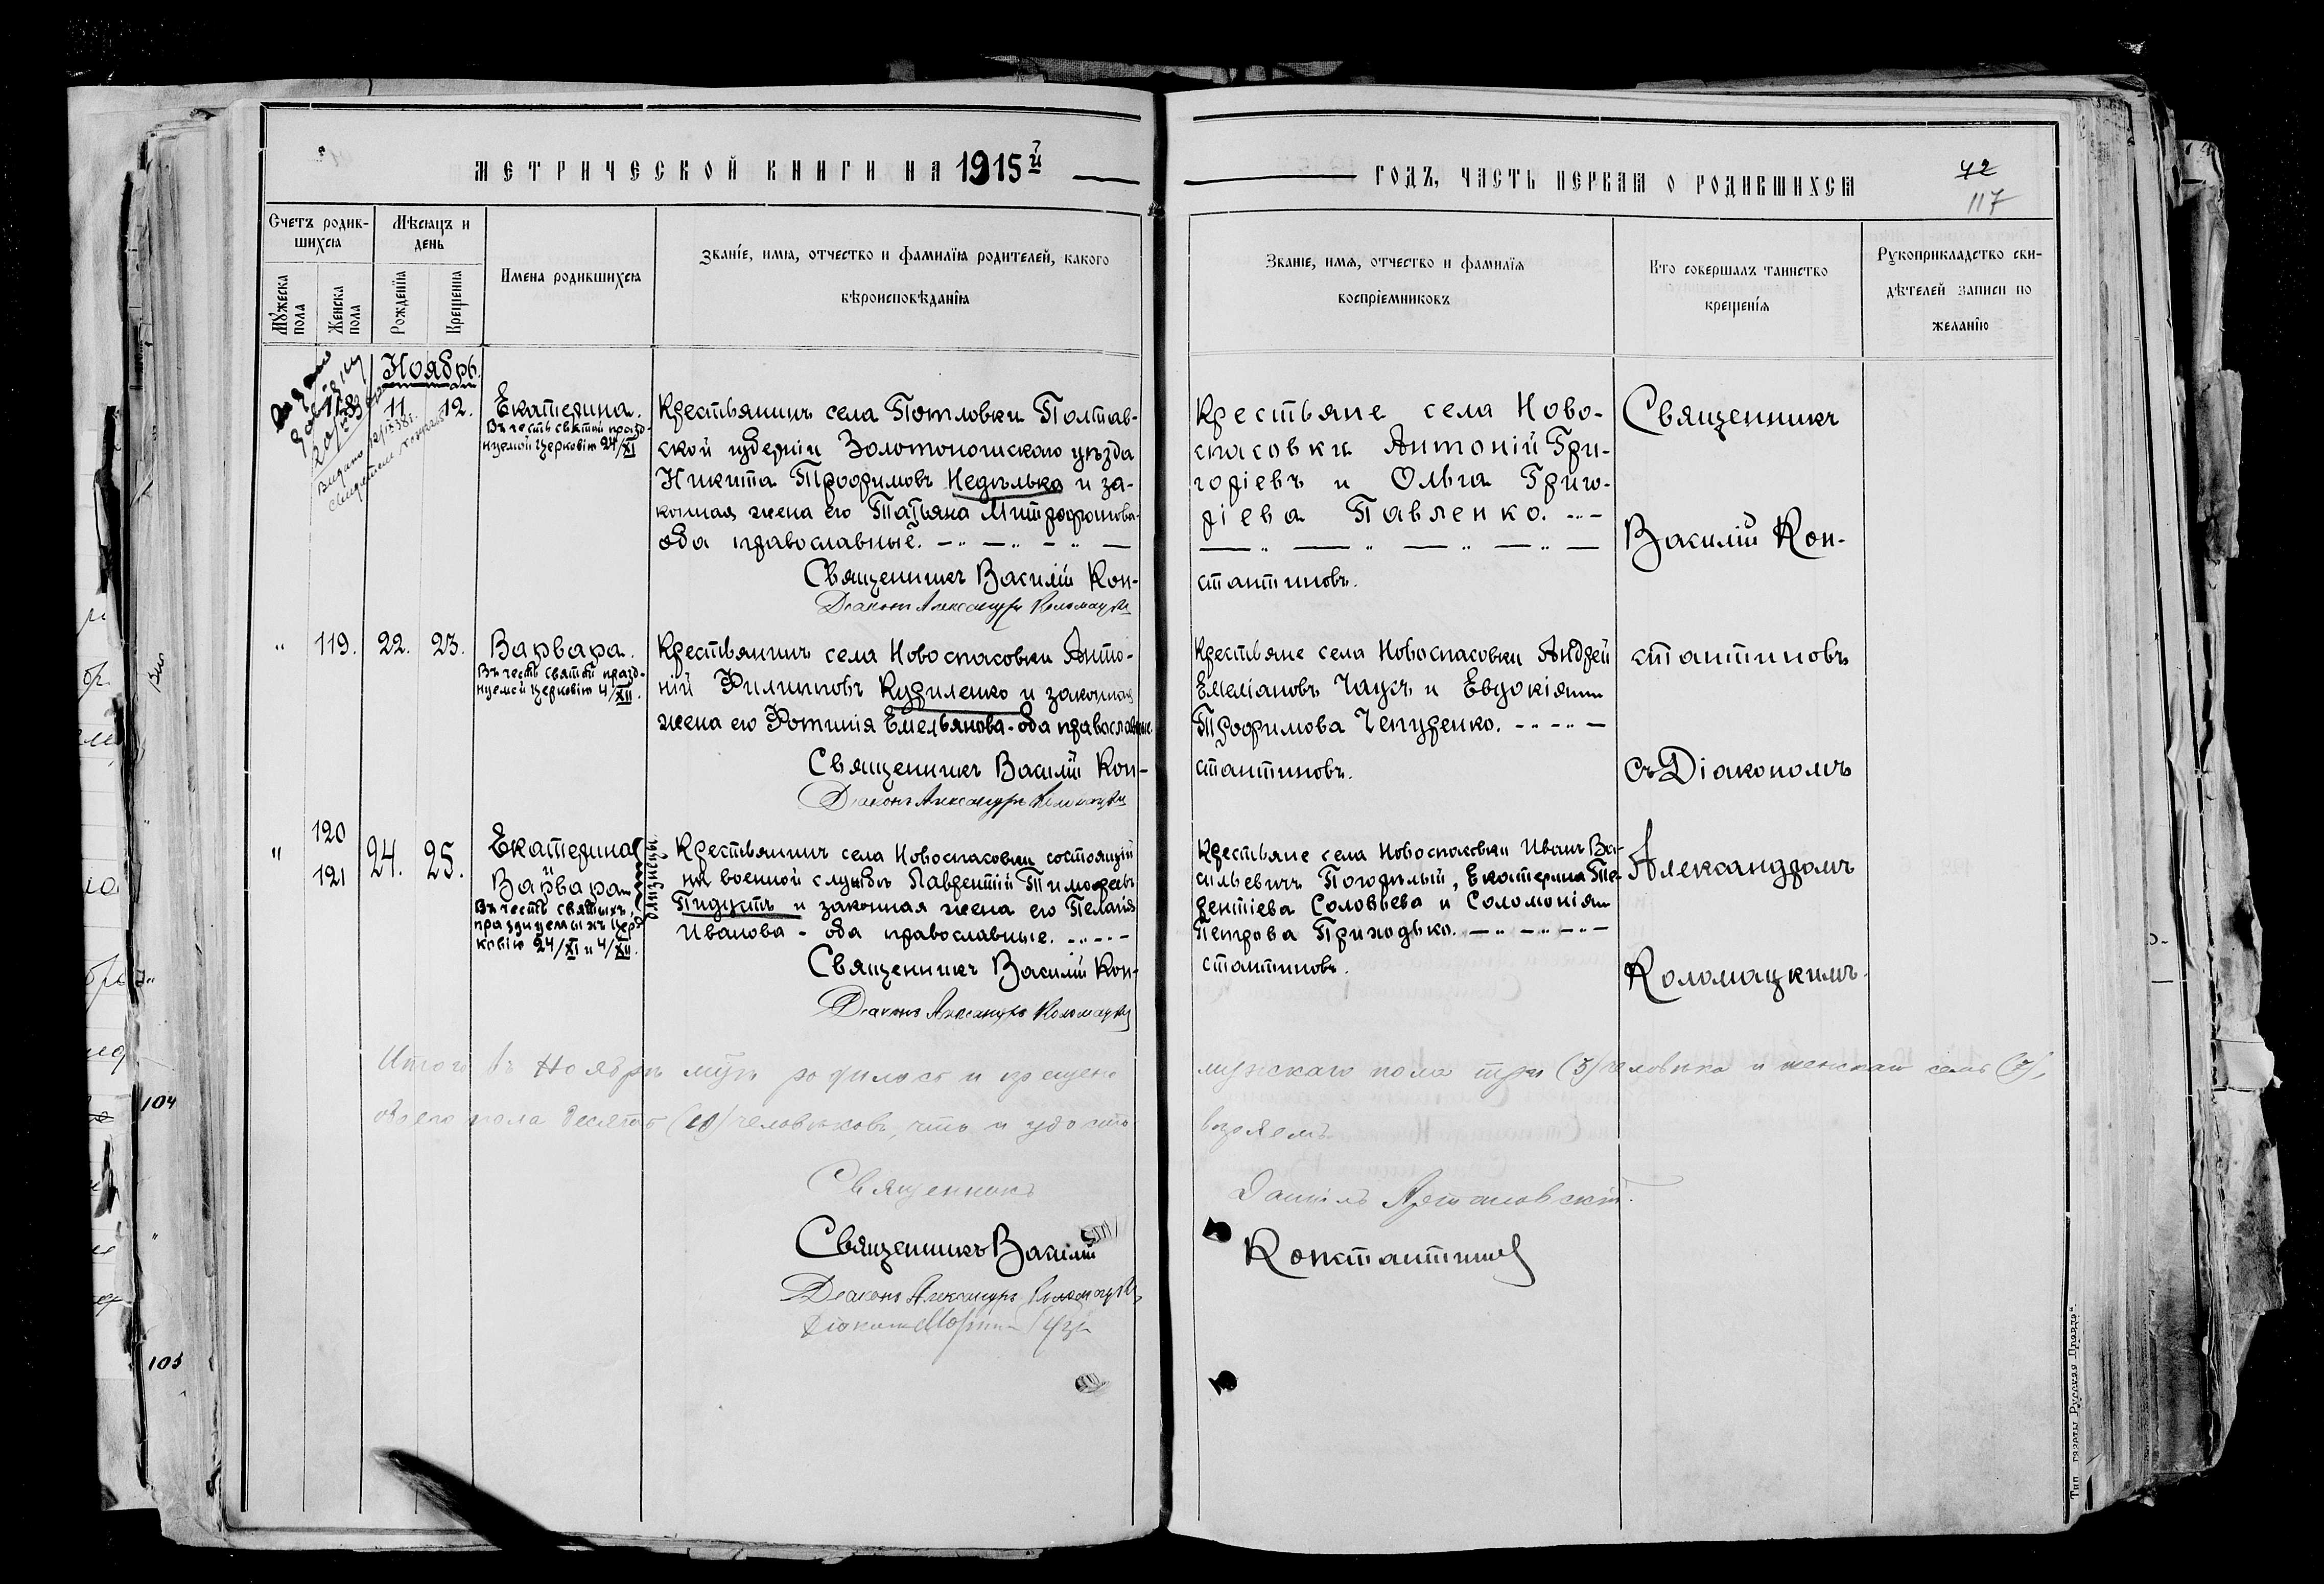 МЕТРИЧЕСКОЙ КНИГИ НА 1915й
ГОДЪ, ЧАСТЬ ПЕРВАЯ О РОДИВШИХСЯ
42
117
Счетъ родив-
шихся
Мужеска пола
Женска пола
Мѣсяцъ и
день
Рожденія
Крещенія
Имена родившихся
Званіе, имя, отчество и фамилія родителей, какого
вѣроисповѣданія
Званіе, имя, отчество и фамилія
воспріемниковъ
Кто совершалъ таинство
крещенія
Рукоприкладство сви-
дѣтелей записи по
желанію
Ноябрь.
118
11
12.
Екатерина.
Въ честь святой празд-
нуемой Церковію 24/XI
Крестьянинъ села Потловки Полтав-
ской губерніи Золотоношскаго уѣзда
Никита Трофимовъ Недѣлько и за-
конная жена его Татьяна Митрофонова-
оба православные.
Священникъ Василій Кон-
Діаконъ Александръ Коломацкій
Крестьяне села Ново-
спасовки Антоній Гри-
горіевъ и Ольга Григо-
ріева Павленко.
стантиновъ.
Священникъ
Василій Кон-
" 119. 22. 23.
Варвара.
Въ честь святой празд-
нуемой Церковію 4/XII.
Крестьянинъ села Новоспасовки Анто-
ній Филипповъ Куриленко и законная
жена его Фотинія Емельянова - оба православные.
Священникъ Василій Кон-
Діаконъ Александръ Коломацкій
Крестьяне села Новоспасовки Андрей
Емеліановъ Чаусъ и Евдокія
Трофимова Чепуренко.
стантиновъ.
стантиновъ
съ Діакономъ
"
120
121
24. 25.
Екатерина
и
Варвара
близнецы.
Въ честь святыхъ,
празднуемыхъ Цер-
ковію 24/XI и 4/XII.
Крестьянинъ села Новоспасовки состоящій
на военной службѣ Лаврентій Тимофеевъ
Пидустъ и законная жена его Пелагія
Иванова - оба православные.
Священникъ Василій Кон-
Діаконъ Александръ Коломацкій
Крестьяне села Новоспасовки Иванъ Ва-
сильевичъ Погорѣлый, Екатерина Те-
рентіева Соловьева и Соломонія
Петрова Приходько.
стантиновъ.
Александромъ
Коломацкимъ.
Итого въ Ноябрѣ мцѣ родилось и крещено
мужскаго пола три (3) человѣка и женскаго семь (7),
обоего пола десять (10) человѣковъ, что и удосто-
вѣряемъ
Священникъ
Даніилъ
Священникъ Василій
Константинов
Діаконъ Александръ Коломацкій
Діаконъ
104
105
Тип. газеты „Русская Правда“.